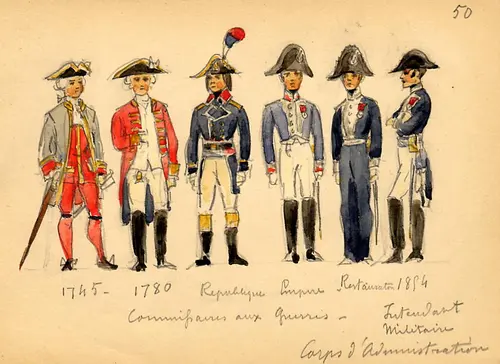 50
1745 - 1780 Republique Empire Restauration 1854
Commissaires aux Guerres - Intendant
Militaire
Corps d'Administration